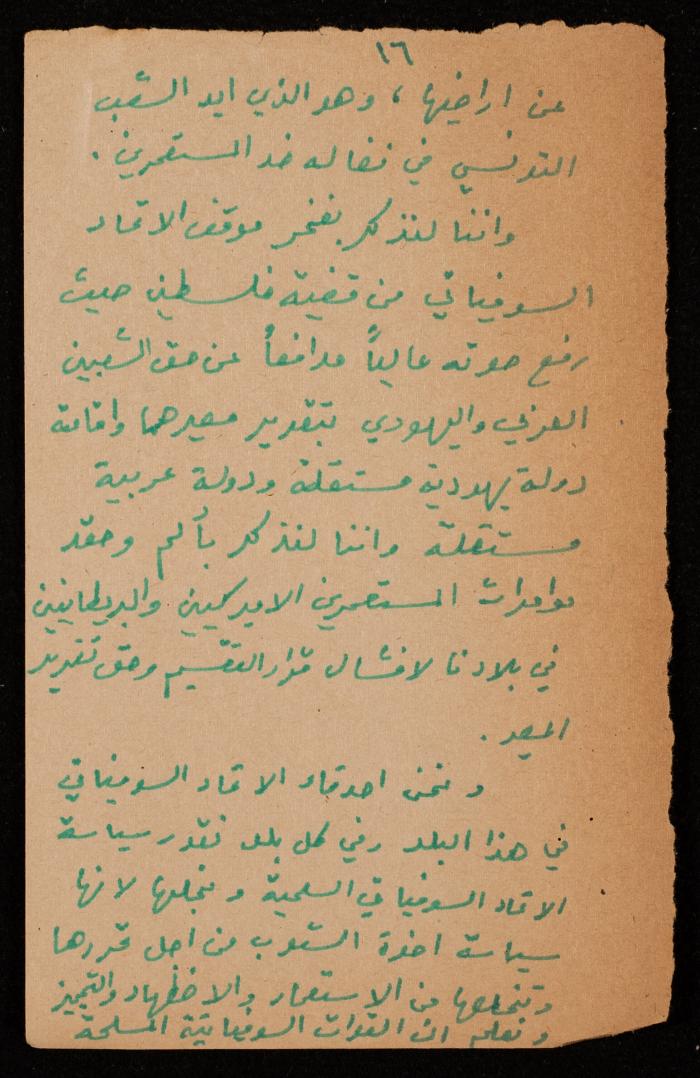 ١٦
عن اراضيها ، وهو الذي ايد الشعب
التونسي في نضاله ضد المستعمرين .
واننا لنذكر بفخر موقف الاتحاد
السوفياتي من قضية فلسطين حيث
رفع صوته عالياً مدافعاً عن حق الشعبين
العربي واليهودي بتقدير مصيرهما واقامة
دولة يهودية مستقلة ودولة عربية
مستقلة واننا لنذكر بألم وحقد
موامرات المستعمرين الاميركيين والبريطانيين
في بلادنا لافشال قرار التقسيم وحق تقرير
المصير .
ونحن اصدقاء الاتحاد السوفياتي
في هذا البلد وفي كل بلد نقدر سياسة
الاتحاد السوفياتي السلمية ونجلها لانها
سياسة اخوة الشعوب من اجل تحررها
وتخلصها من الاستعمار والاضطهاد والتمييز
ونعلم ان القوات السوفياتية المسلحة